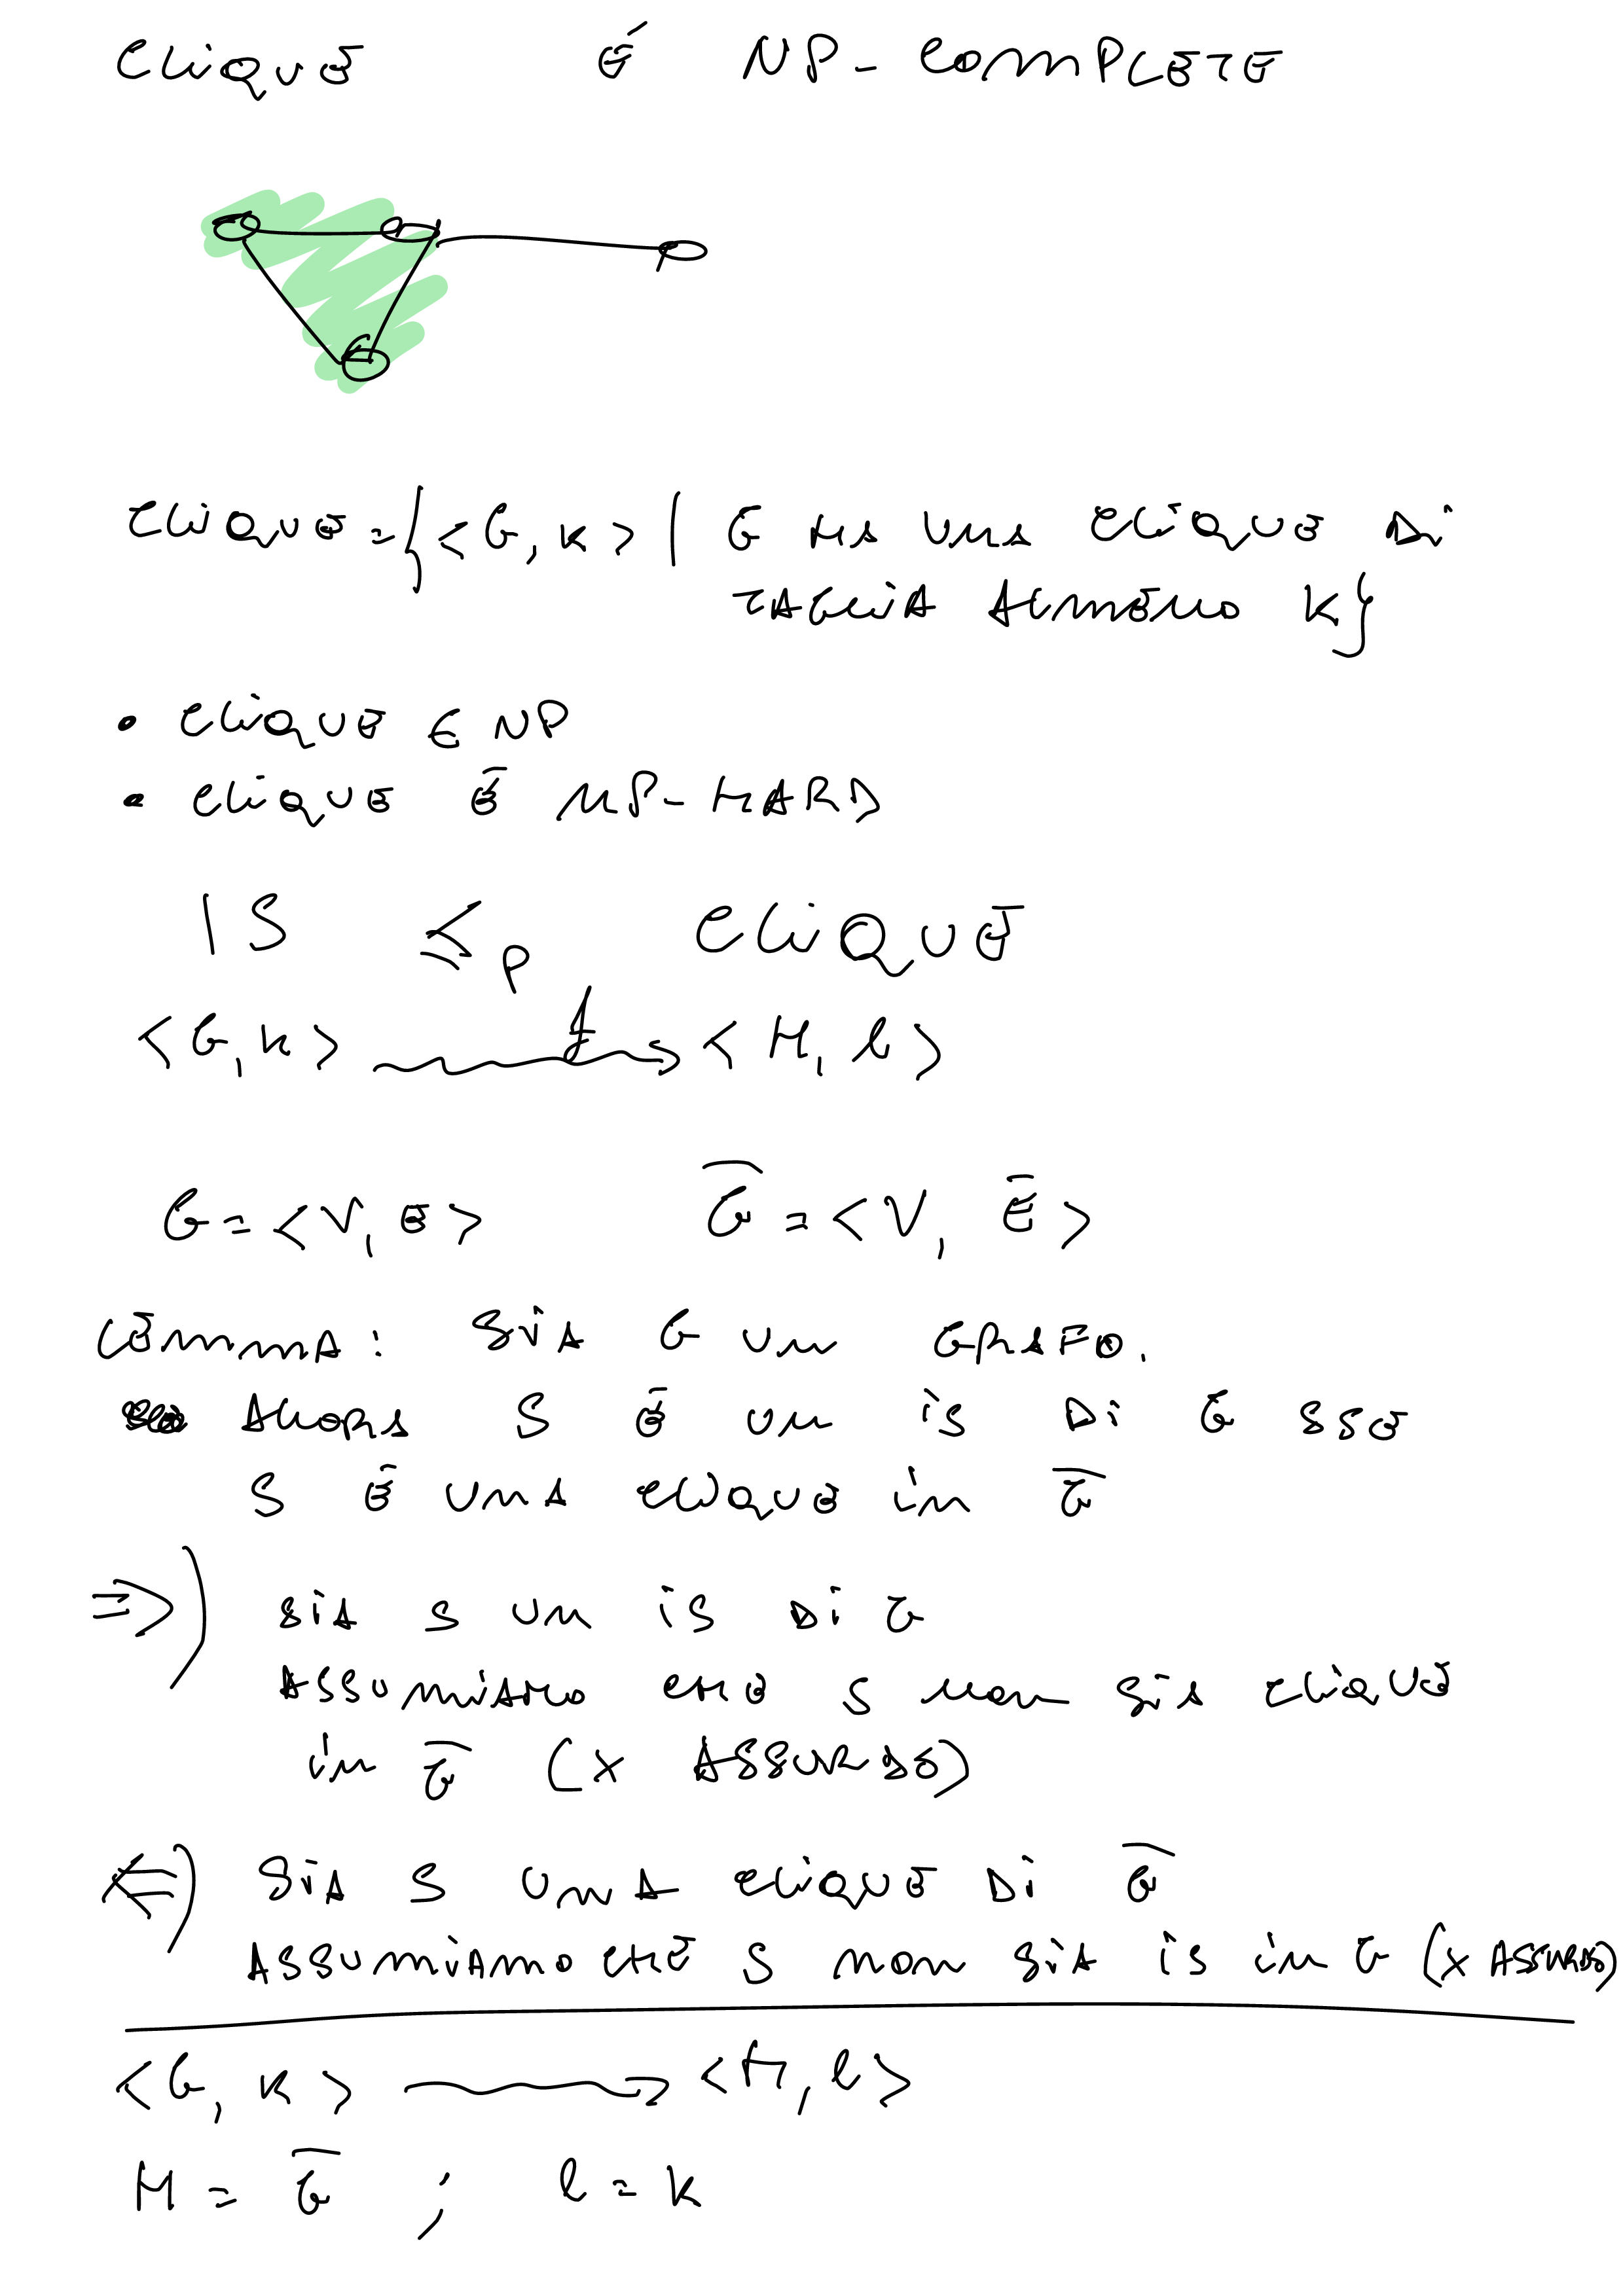 CLIQUE È NP-COMPLETE
CLIQUE = {<G, K> | G HA UNA CLIQUE DI
TAGLIA ALMENO K}
• CLIQUE ∈ NP
• CLIQUE È NP-HARD
IS ≤p CLIQUE
<G, K> f → <H, l>
G = <V, E> G̅ = <V, E̅>
LEMMA: SIA G UN GRAFO.
ALLORA S È UN IS DI G SSE
S È UNA CLIQUE IN G̅
⇒) SIA S UN IS DI G
ASSUMIAMO CHE S NON SIA CLIQUE
IN G̅ (X ASSURDO)
⇐) SIA S UNA CLIQUE DI G̅
ASSUMIAMO CHE S NON SIA IS IN G (X ASSURDO)
<G, K> → <H, l>
H = G̅ ; l = K